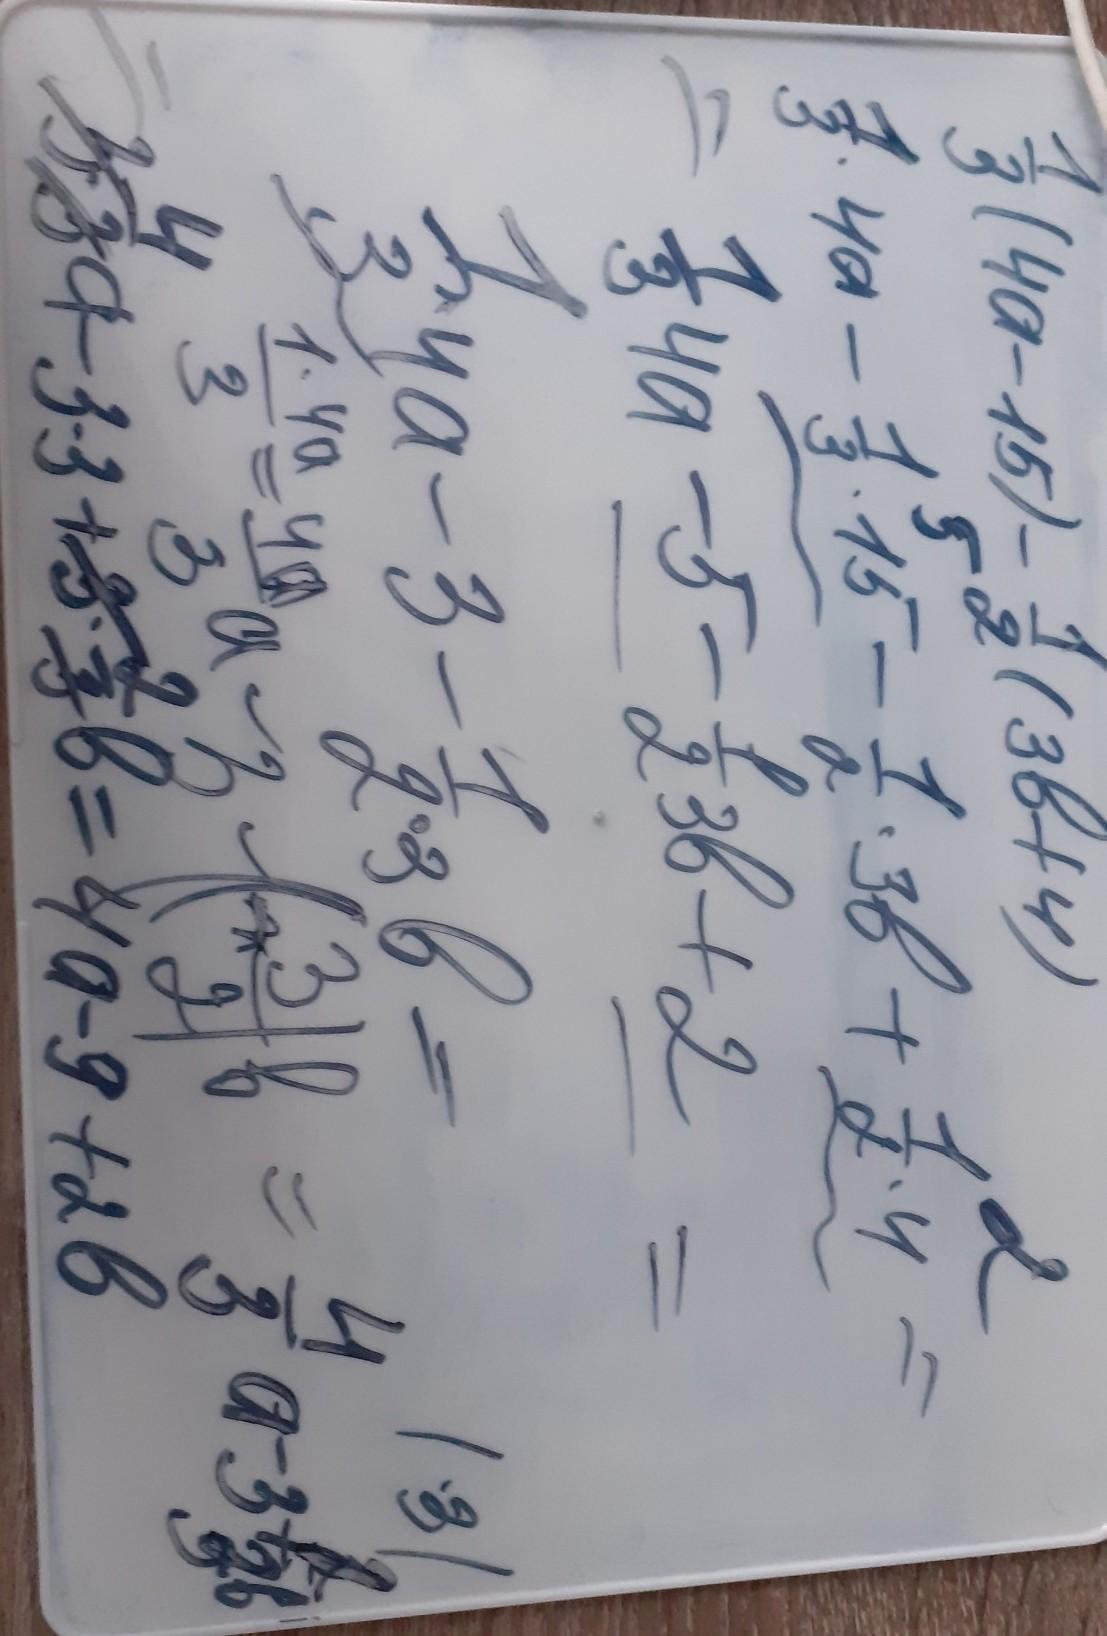 1/3 (4a - 15) - 1/2 (3b + 4)
1/3 · 4a - 1/3 · 15 5 - 1/2 · 3b + 1/2 · 4 2 =
= 1/3 4a - 5 - 1/2 3b + 2 =
1/3 · 4a - 3 - 1/2 · 3b =
1·4a/3 = 4a/3
= 4/3 a - 3 = 4/3 a - 3 | · 3 |
a - 3 · 3 + b = 4a - 9 + 2b